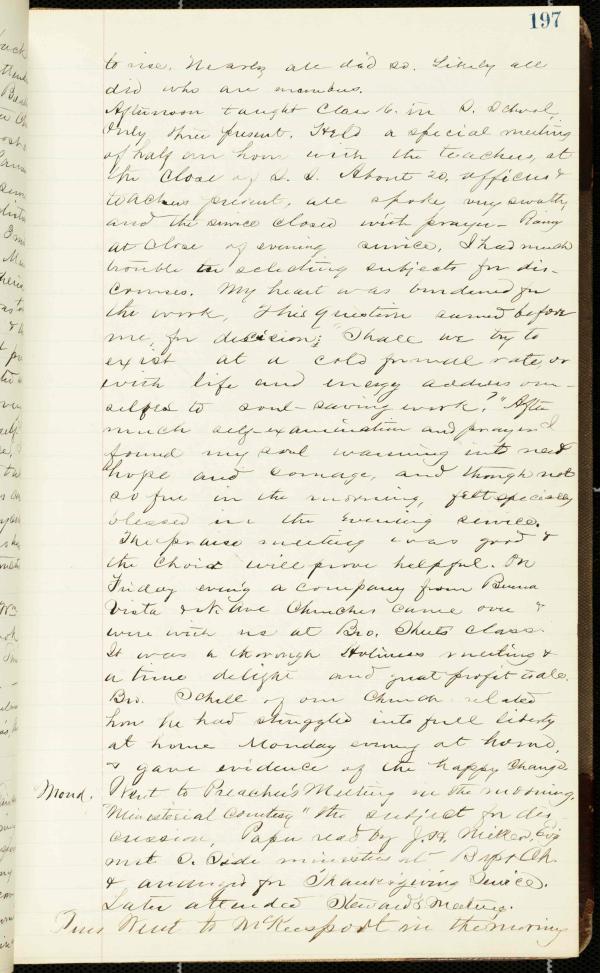 197
to rise. Nearly all did so. Likely all
did who are members.
Afternoon taught Class 16. in S. School,
Only three present. Held a special meeting
of half an hour with the teachers, at
the close of S. S. About 20, officers &
teachers present, all spoke very
and the service closed with prayer – Rainy
at close of evening service, I had much
trouble in selecting subjects for dis-
courses. My heart was burdened for
the work, This question arised before
me, for decision; "Shall we try to
exist at a cold formal rate, or
with life and energy address our-
selves to soul-saving work?" After
much self-examination and prayer I
found my soul warming into new
hope and courage, and though not
so free in the morning, felt specially
blessed in the evening service.
The praise meeting was good &
the Choir will prove helpful. On
Friday even'g a company from Buena
Vista & N. Ave Churches came over &
were with us at Bro. Shuts class.
It was a thorough Holiness meeting &
a time delight and great profit to all.
Bro. Schell of our Church related
how he had struggled into full liberty
at home Monday evening at home,
& gave evidence of the happy change.
Mond. Went to Preacher's Meeting in the morning.
"Ministerial Courtesy" the subject for dis-
cussion, Paper read by J. H. Miller,
met S. Side ministers at Bapt Ch.
& arranged for Thanksgiving Service.
Later attended Steward's Meeting.
Tues Went to McKeesport in the morning